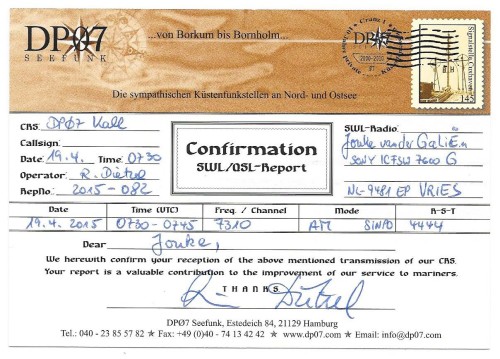 DPØ7
SEEFUNK
...von Borkum bis Bornholm...
2000-2000
Signalstelle Cuxhaven
145
Die sympathischen Küstenfunkstellen an Nord- und Ostsee
CRS: DPØ7 Kall
Callsign:
Date: 19.4. Time: 0730
Operator: R. Dietzel
RepNo: 2015-082
Confirmation
SWL/QSL-Report
SWL-Radio:
Jouke van der Galiën
SONY ICF SW 7600 G
NL-9481 EP VRIES
Date Time (UTC) Freq. / Channel Mode R-S-T
19.4.2015 0730-0745 7310 AM SINPO 4444
Dear Jouke,
We herewith confirm your reception of the above mentioned transmission of our CRS.
Your report is a valuable contribution to the improvement of our service to mariners.
THANKS
DPØ7 Seefunk, Estedeich 84, 21129 Hamburg
Tel.: 040 - 23 85 57 82 ★ Fax: +49 (0)40 - 74 13 42 42 ★ www.dp07.com ★ Email: info@dp07.com